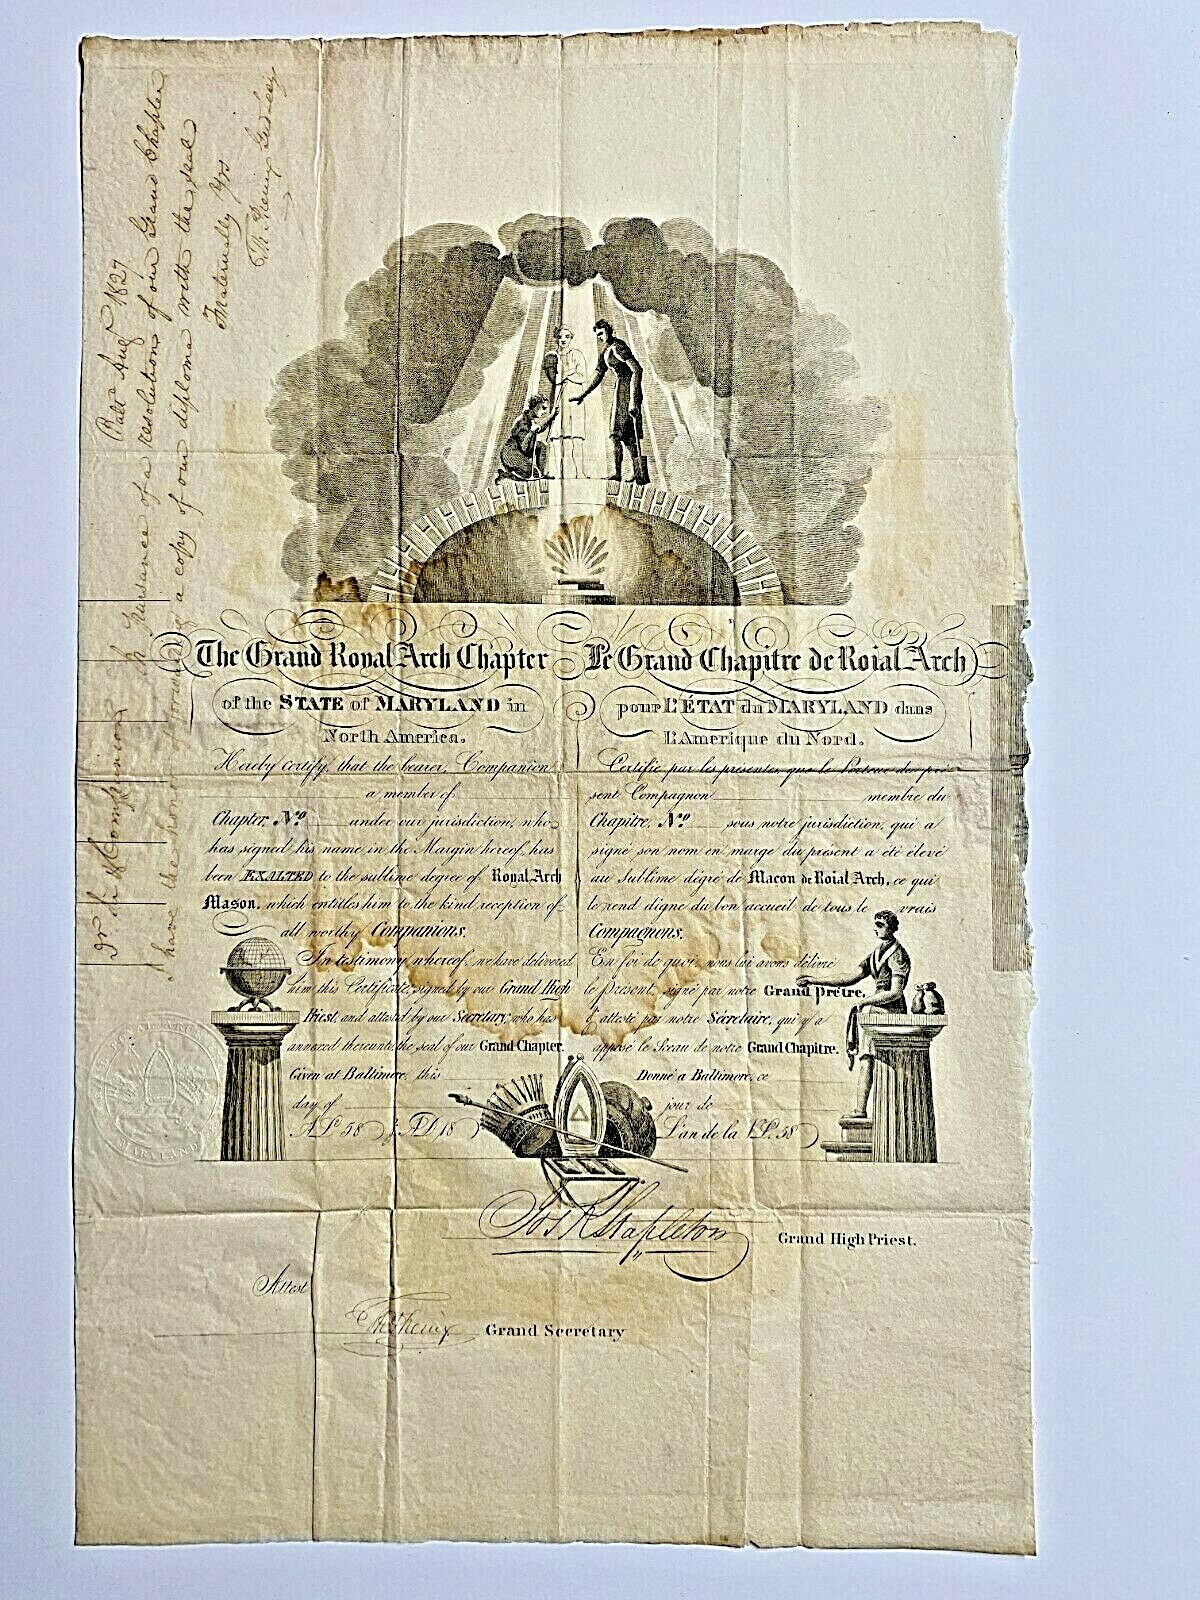 Balt. Aug 1827
Dr. Sr. & Companion
In Pursuance of a resolution of our Grand Chapter
I have the honor of forwarding a copy of our diploma with the seal
Fraternally Yrs
Gd Secy
The Grand Royal Arch Chapter
of the STATE of MARYLAND in
North America.
Hereby certify, that the bearer, Companion
a member of
Chapter, No. under our jurisdiction, who
has signed his name in the Margin hereof, has
been EXALTED to the sublime degee of Royal Arch
Mason, which entitles him to the kind reception of
all worthy Companions.
In testimony whereof, we have delivered
him this Certificate, signed by our Grand High
Priest, and attested by our Secretary, who has
annexed thereunto the seal of our Grand Chapter.
Given at Baltimore, this
day of
A.L. 58 & A.D. 18
Le Grand Chapitre de Roial Arch
pour L'ÉTAT du MARYLAND dans
L'Amerique du Nord.
Certifie par les présentes, que le Porteur du pré
sent Compagnon membre du
Chapitre, No. sous notre jurisdiction, qui a
signé son nom en marge du présent a été élevé
au Sublime dégré de Macon de Roial Arch, ce qui
le rend digne du bon accueil de tous le vrais
Compagnons.
En foi de quoi, nous lui avons délivré
le Présent, signé par notre Grand Prêtre,
& attesté par notre Sécrétaire, qui y a
apposé le Sceau de notre Grand Chapitre.
Donné a Baltimore, ce
jour de
L'an de la V.L. 58
MARYLAND
Jos K Stapleton
Grand High Priest.
Attest
Grand Secretary